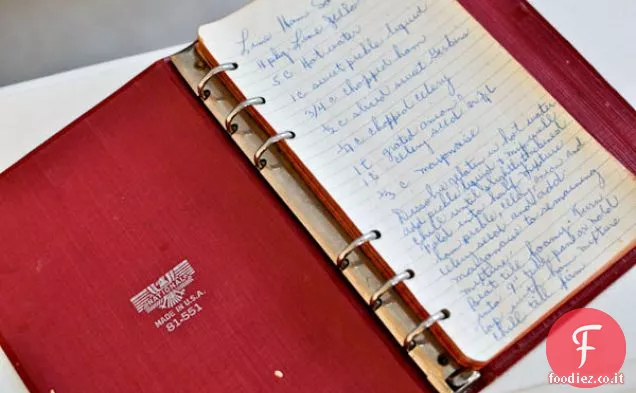 Lime Ham
4 pkg Lime Jello
5 c Hot water
1 c sweet pickle liquid
3/4 c chopped ham
1/2 c sliced sweet Gerkins
1/4 c chopped celery
1 t grated onion
1 t celery seed
2/3 c mayonaise
Dissolve gelatin in hot water
add pickle liquid & mix well
chill until slightly thickened
Fold into half mixture
ham pickle, celery, onion and
celery seed and add
mayonaise to remaining
mixture
Beat till foamy.
into 9 in pan or mold
top with ham mixture
chill till firm
NATIONAL
MADE IN U.S.A.
81-551
F
foodiez.co.it